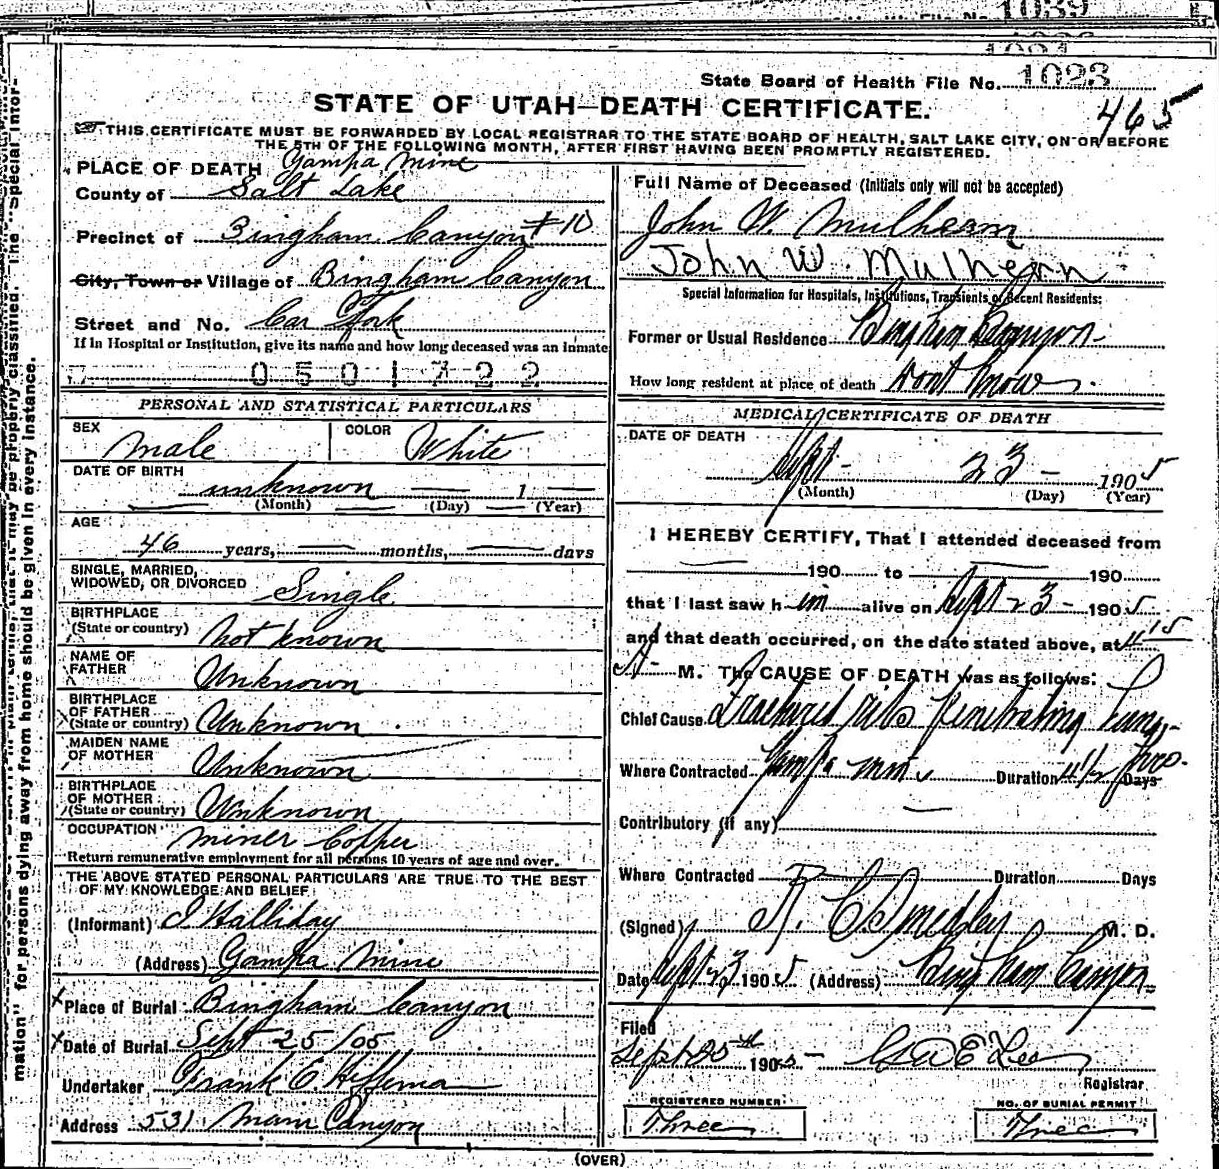 1039
State Board of Health File No. 1023
465
STATE OF UTAH—DEATH CERTIFICATE.
THIS CERTIFICATE MUST BE FORWARDED BY LOCAL REGISTRAR TO THE STATE BOARD OF HEALTH, SALT LAKE CITY, ON OR BEFORE
THE 5TH OF THE FOLLOWING MONTH, AFTER FIRST HAVING BEEN PROMPTLY REGISTERED.
PLACE OF DEATH Yampa Mine
County of Salt Lake
Precinct of Bingham Canyon #10
City, Town or Village of Bingham Canyon
Street and No. Car Fork
If in Hospital or Institution, give its name and how long deceased was an inmate
0501722
PERSONAL AND STATISTICAL PARTICULARS
SEX male COLOR White
DATE OF BIRTH unknown — 1 —
(Month) (Day) (Year)
AGE
46 years, — months, — days
SINGLE, MARRIED,
WIDOWED, OR DIVORCED Single
BIRTHPLACE
(State or country) not known
NAME OF
FATHER Unknown
BIRTHPLACE
OF FATHER
(State or country) Unknown
MAIDEN NAME
OF MOTHER Unknown
BIRTHPLACE
OF MOTHER
(State or country) Unknown
OCCUPATION Miner Copper
Return remunerative employment for all persons 10 years of age and over.
THE ABOVE STATED PERSONAL PARTICULARS ARE TRUE TO THE BEST
OF MY KNOWLEDGE AND BELIEF
(Informant) J Halliday
(Address) Yampa Mine
Place of Burial Bingham Canyon
Date of Burial Sept 25/05
Undertaker Frank E.
Address 531 Main Canyon
Full Name of Deceased (Initials only will not be accepted)
John W. Mulhearn
John W. Mulhearn
Special Information for Hospitals, Institutions, Transients or Recent Residents:
Former or Usual Residence Bingham Canyon
How long resident at place of death dont know.
MEDICAL CERTIFICATE OF DEATH
DATE OF DEATH
Sept - 23 - 1905
(Month) (Day) (Year)
I HEREBY CERTIFY, That I attended deceased from
— 190 to — 190
that I last saw him alive on Sept 23 - 1905
and that death occurred, on the date stated above, at 4 15
A- M. The CAUSE OF DEATH was as follows:
Chief Cause Fractured ribs penetrating Lung-
Where Contracted Yampa mine Duration 4 1/2 hrs. Days
Contributory (if any) —
Where Contracted Duration Days
(Signed) M. D.
Date Sept 23 1905 (Address) Bingham Canyon
Filed
Sept 25th 1905 - Lee
Registrar
REGISTERED NUMBER
Three
NO. OF BURIAL PERMIT
Three
(OVER)
mation" for persons dying away from home should be given in every instance.